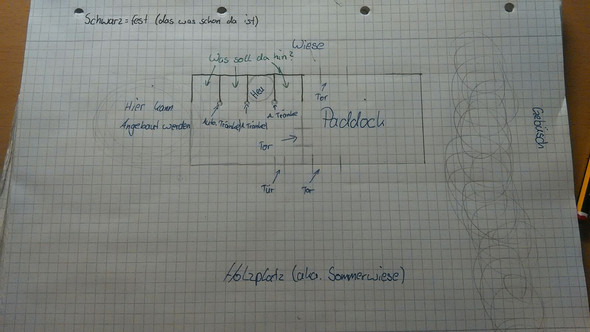 Schwarz = fest (das was schon da ist)
Wiese
Was soll da hin?
Heu
Tor
Hier kann
Angebaut werden
Auto. Tränke
A. Tränke
A. Tränke
Paddock
Tor
Gebüsch
Tür
Tor
Holzplatz (aka. Sommerwiese)